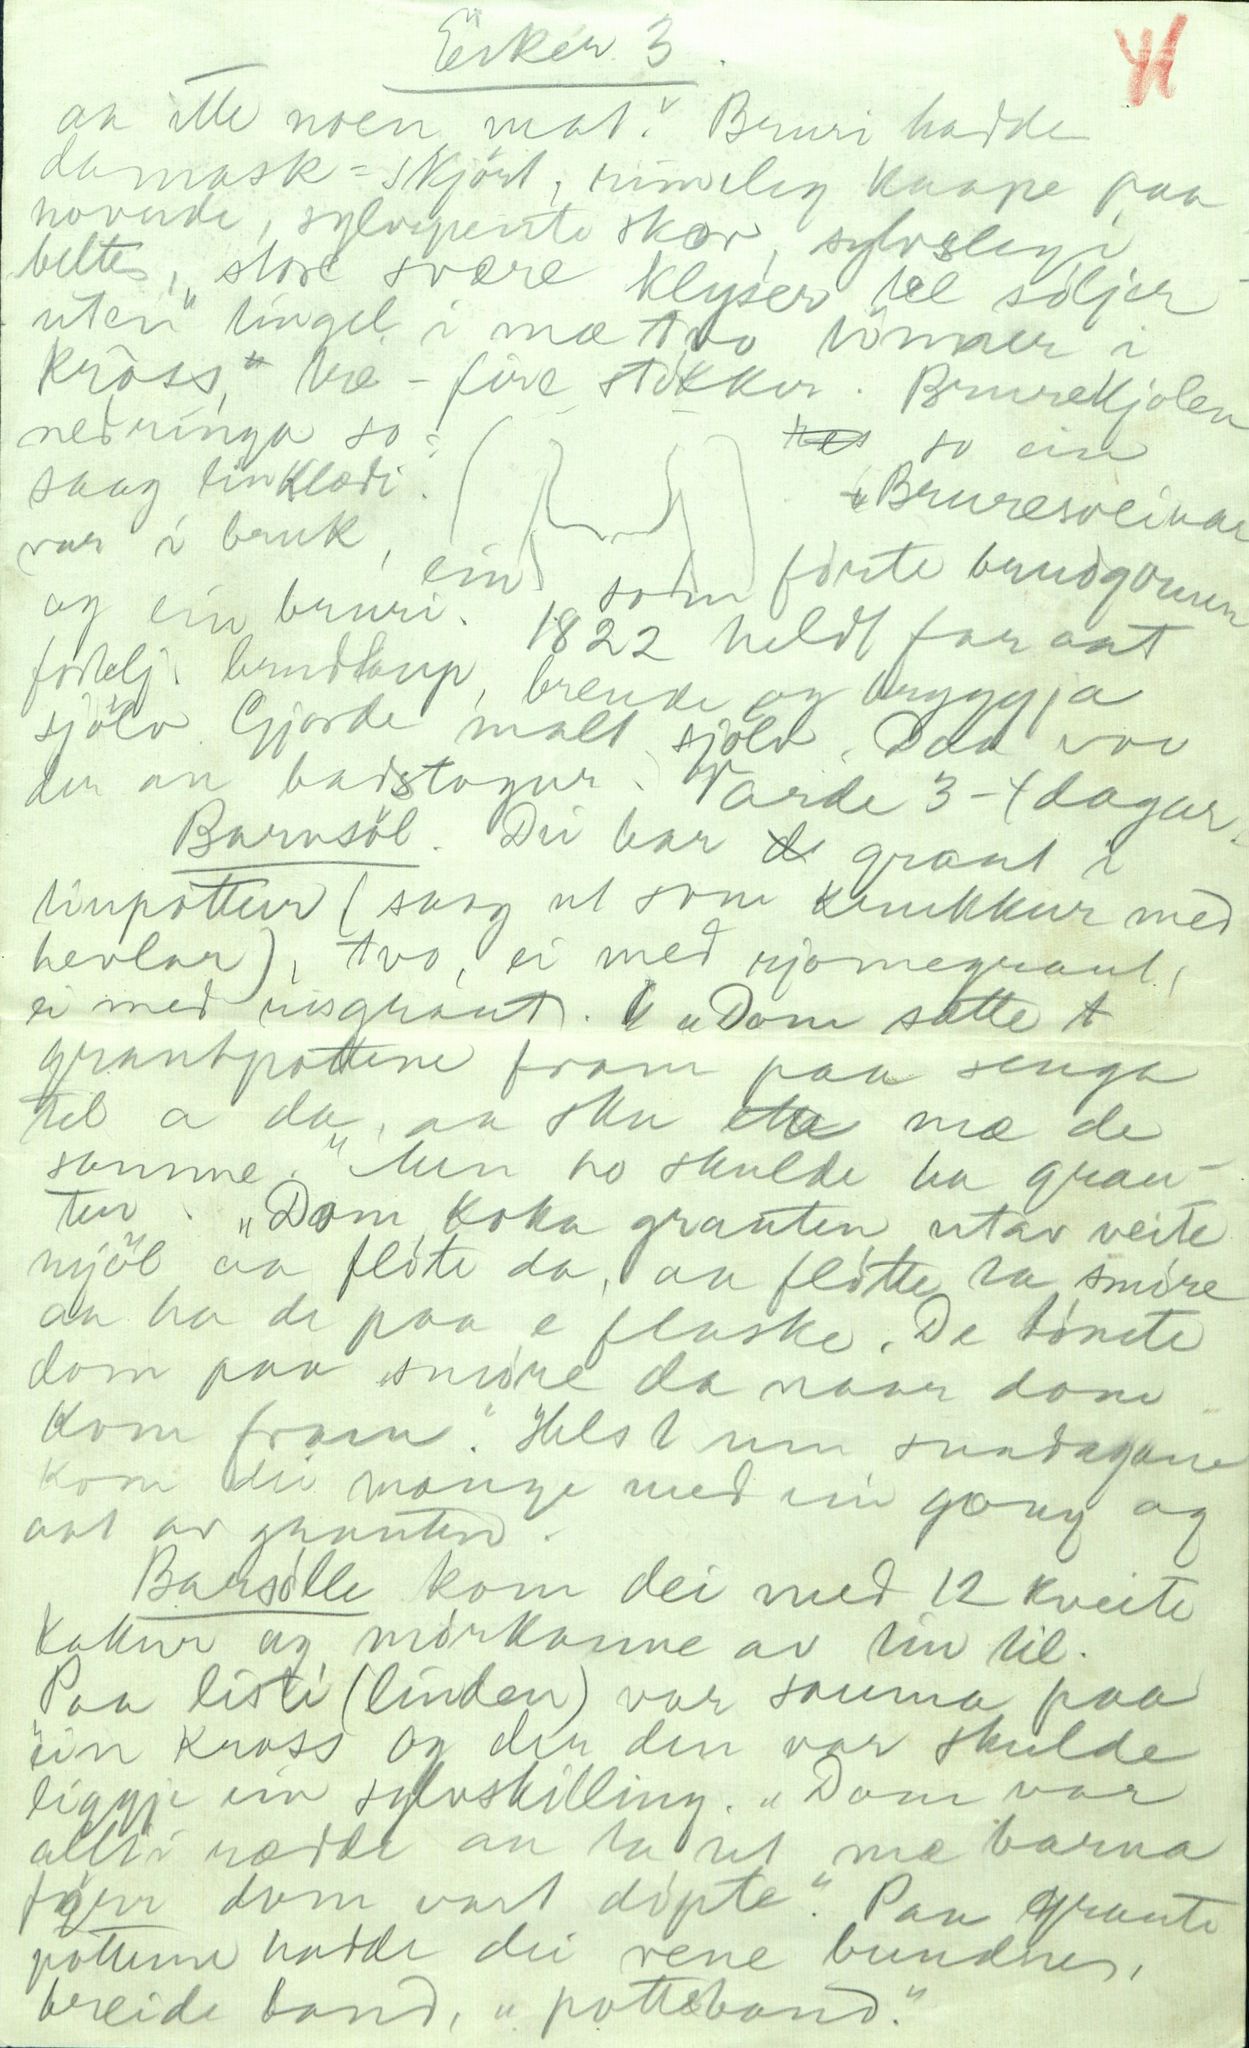 Eiker 3.
41
aa itte noen mat." Bruri hadde
damask-skjört, rimeleg kaape paa
hovude, sylvspente skor, sylvslegi
belte, store svære klyser til söljer
uten "lingel i mæ tvo lömmer i
kröss," tre-fire stökkur. Brurekjolen
nedringa so: so ein
saag linklædi. "Bruresveinar
var i bruk, ein som förte brudgomen
og ein bruri. 1822 heldt far aat
fortelj. brudlaup, brende og bryggja
sjölv. Gjorde malt sjölv. Daa var
der an badstogur. Varde 3-4 dagar.
Barnsöl. Dei bar graut i
tinpottur (saag ut som krukkur med
hevlar), tvo, ei med rjomegraut,
ei med risgraut. "Dom sette
grautpottene fram paa senga
tel a da, aa sku eta mæ de
samme." Men ho skulde ha grau-
ten. "Dom koka grauten utav veite
mjöl aa flöte da, aa flötte ta smöre
aa ha de paa e flaske. De tömte
dom paa smöre da naar dom
kom fram." Helst um sundagane
kom dei mange med ein gong og
aat av grauten.
Barsölle kom dei med 12 kveite
kakur og mörkanne av tin til.
Paa listi (linden) var sauma paa
ein kross og der den var skulde
liggje ein sylvskilling. "Dom var
allti rædde aa ta ut mæ barna
förr dom vart döpte." Paa graute
pottene hadde dei rene bundner,
breide band, "potteband."